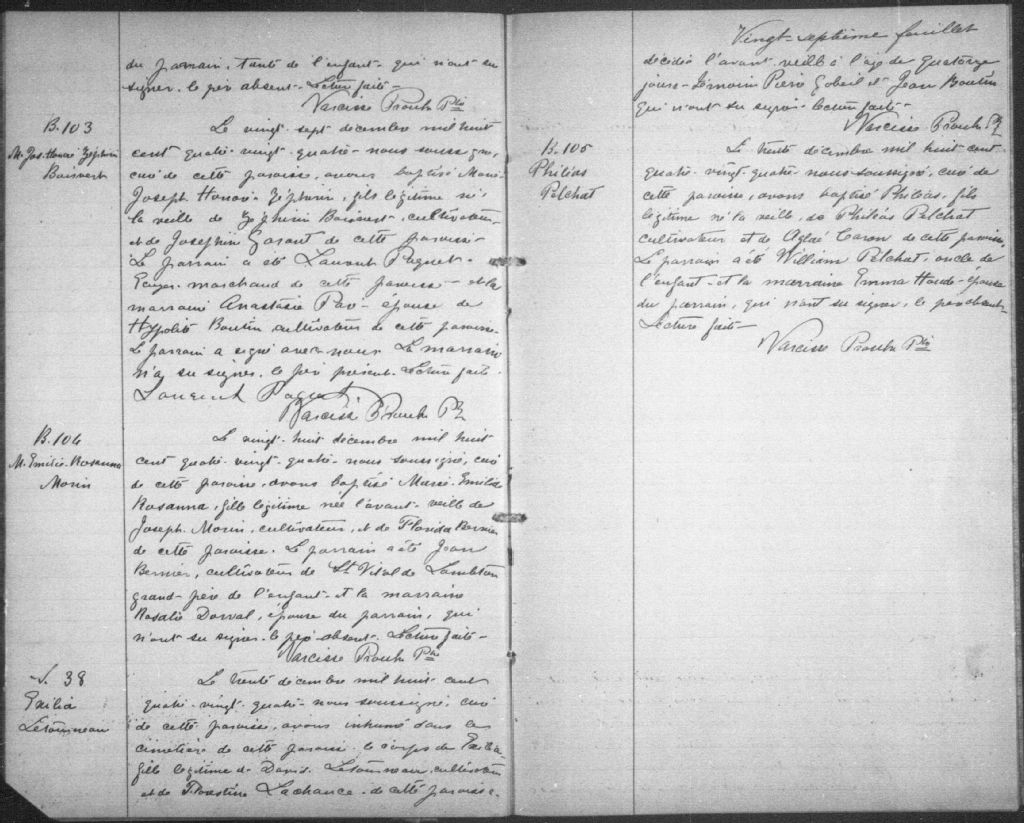 du parrain, tante de l'enfant qui n'ont su
signer. le père absent. Lecture faite
Narcisse Proulx Ptre
B.103
M. Jos. Honoré Zéphirin
Boisvert
Le vingt-sept décembre mil huit
cent quatre-vingt-quatre nous soussigné,
curé de cette paroisse, avons baptisé Marie
Joseph Honoré Zéphirin, fils légitime né
la veille de Zéphirin Boisvert, cultivateur
et de Josephine Garant de cette paroisse
Le parrain a été Laurent Paquet
Ecuyer marchand de cette paroisse et la
marraine Anastasie Paré épouse de
Hypolite Boutin cultivateur de cette paroisse.
Le parrain a signé avec nous La marraine
n'a su signer. le père présent. Lecture faite
Laurent Paquet.
Narcisse Proulx Ptre
B.104
M. Emilie-Rosanna
Morin
Le vingt-huit décembre mil huit
cent quatre-vingt-quatre nous soussigné, curé
de cette paroisse, avons baptisé Marie-Emilie
Rosanna, fille légitime née l'avant-veille de
Joseph Morin, cultivateur, et de Florida Bernier
de cette paroisse. Le parrain a été Jean
Bernier, cultivateur de St Vital de Lambton
grand-père de l'enfant et la marraine
Rosalie Dorval, épouse du parrain, qui
n'ont su signer. le père absent. Lecture faite
Narcisse Proulx Ptre
S. 38
Exilia
Létourneau
Le trente décembre mil huit cent
quatre-vingt-quatre nous soussigné, curé
de cette paroisse, avons inhumé dans le
cimetière de cette paroisse le corps de Exilia
fille légitime de David Létourneau, cultivateur
et de Lachance de cette paroisse.
Vingt-septième feuillet
décédée l'avant-veille à l'âge de quatorze
jours. Témoins Pierre Gobeil et Jean Boutin
qui n'ont su signer. lecture faite
Narcisse Proulx Ptre
B.105
Philéas
Pelchat
Le trente décembre mil huit cent
quatre-vingt-quatre nous soussigné, curé de
cette paroisse, avons baptisé Philéas, fils
légitime né la veille, de Philéas Pelchat
cultivateur et de Aglaé Caron de cette paroisse.
Le parrain a été William Pelchat, oncle de
l'enfant et la marraine Emma Houde épouse
du parrain, qui n'ont su signer, le père absent
Lecture faite
Narcisse Proulx Ptre